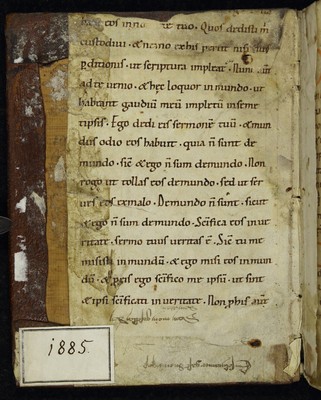 eos in no tuo. Quos dedisti m
custodiui. & nemo ex his periit nisi filius
perditionis. ut scriptura impleat. Nunc aut
ad te uenio. & hęc loquor in mundo. ut
habeant gaudiū meū impletū in semet
ipsis. Ego dedi eis sermonē tuū. & mun
dus odio eos habuit. quia n̄ sunt de
mundo. sic̄ & ego n̄ sum de mundo. Non
rogo ut tollas eos de mundo. sed ut ser
ues eos ex malo. De mundo n̄ sunt. sicut
& ego n̄ sum de mundo. Sc̄ifica eos in ue
ritate. Sermo tuus ueritas ē. Sic̄ tu me
misisti in mundū. & ego misi eos in mun
dū. & p eis ego sc̄ifico me ipsū. ut sint
& ipsi sc̄ificati in ueritate. Non p his aut̄
1885.